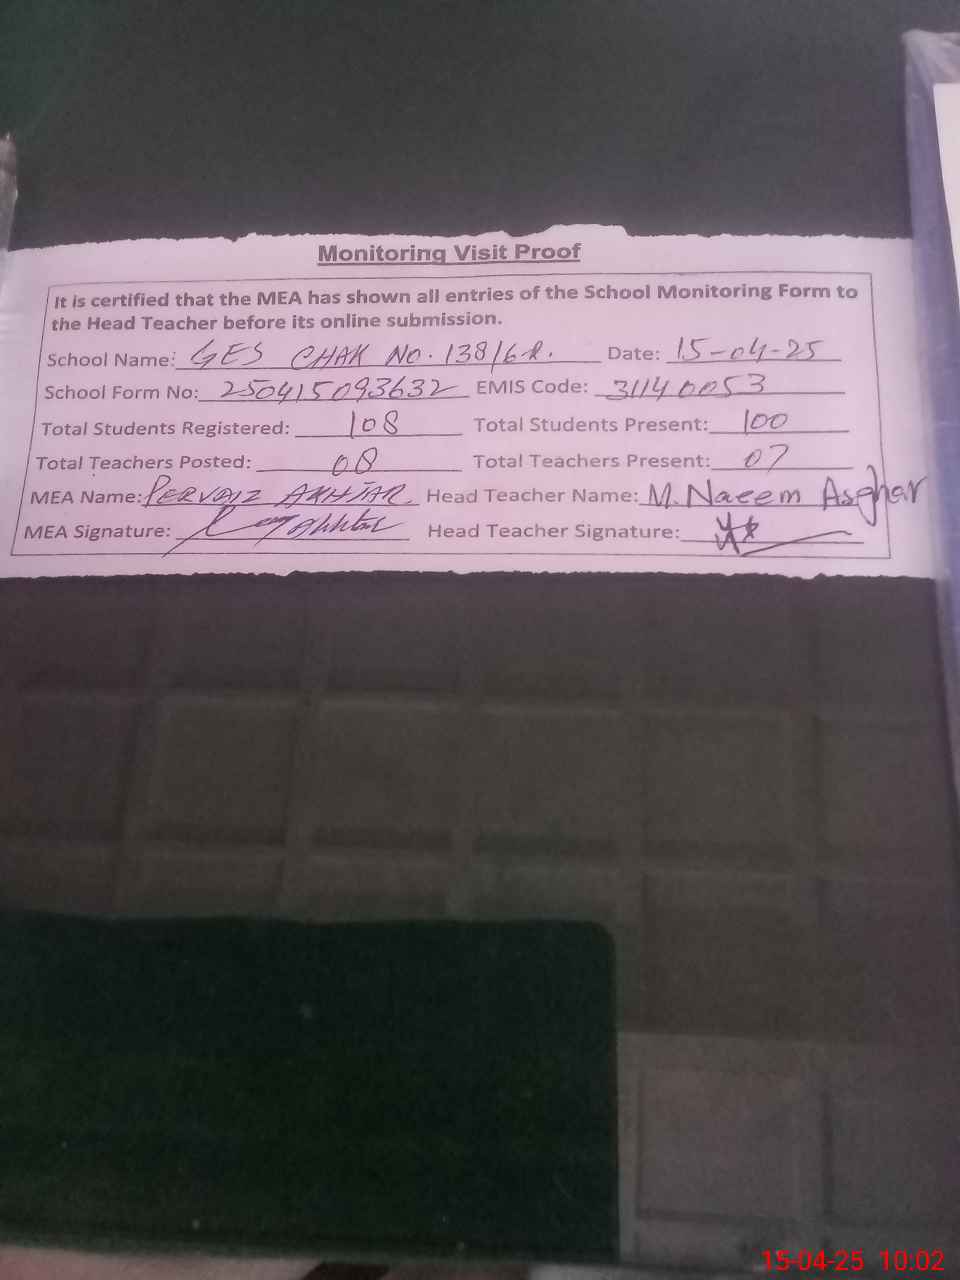 Monitoring Visit Proof
It is certified that the MEA has shown all entries of the School Monitoring Form to
the Head Teacher before its online submission.
School Name: GES CHAK NO. 138/6-R. Date: 15-04-25
School Form No: 250415093632 EMIS Code: 31140053
Total Students Registered: 108 Total Students Present: 100
Total Teachers Posted: 08 Total Teachers Present: 07
MEA Name: PERVAIZ AKHTAR Head Teacher Name: M. Naeem Asghar
MEA Signature: Head Teacher Signature:
15-04-25 10:02